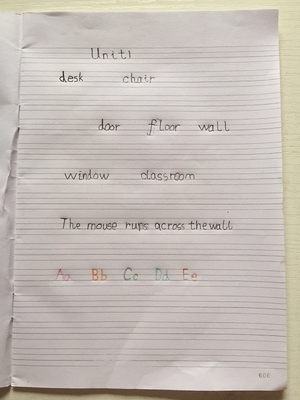 Unit1
desk chair
door floor wall
window classroom
The mouse runs across the wall
Aa Bb Cc Dd Ee